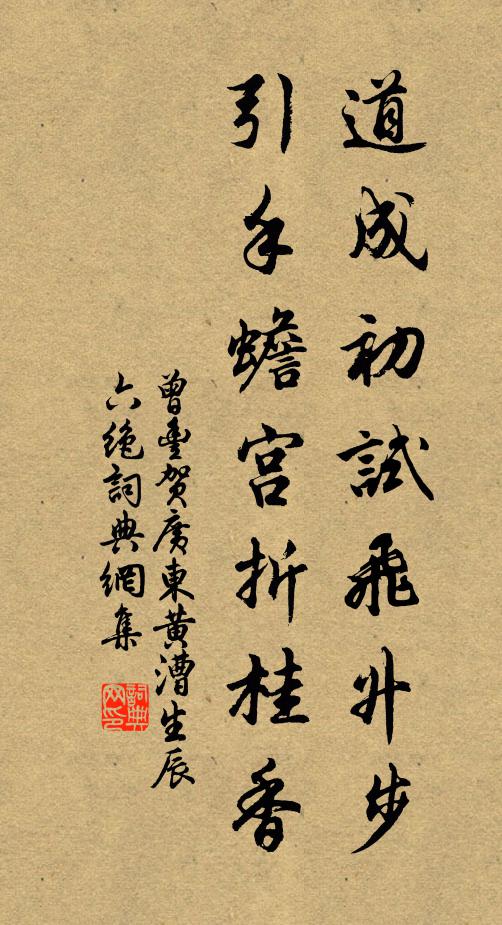 道成初試飛升步
引手蟾宮折桂香
曾豐賀廣東黃漕生辰
六絶詞典網集
詞典
网印